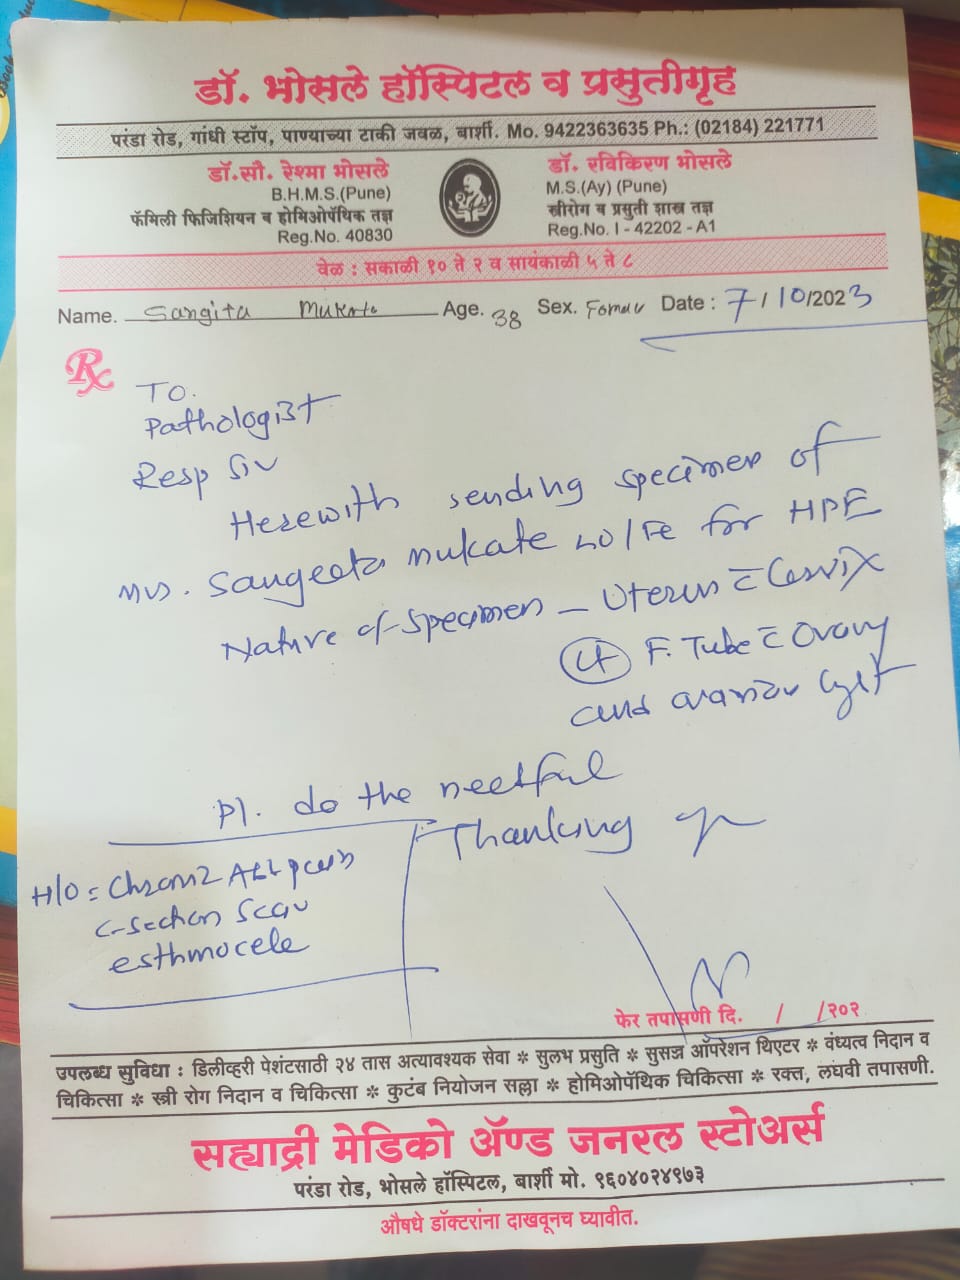 डॉ. भोसले हॉस्पिटल व प्रसुतीगृह
परंडा रोड, गांधी स्टॉप, पाण्याच्या टाकी जवळ, बार्शी. Mo. 9422363635 Ph.: (02184) 221771
डॉ.सौ. रेश्मा भोसले
B.H.M.S.(Pune)
फॅमिली फिजिशियन व होमिओपॅथिक तज्ञ
Reg.No. 40830
डॉ. रविकिरण भोसले
M.S.(Ay) (Pune)
स्त्रीरोग व प्रसुती शास्त्र तज्ञ
Reg.No. I - 42202 - A1
वेळ : सकाळी १० ते २ व सायंकाळी ५ ते ८
Name. Sangita Mukate Age. 38 Sex. Date : 7/10/2023
Rx
TO.
Pathologist
Resp Sir
Herewith sending specimen of
Mrs. Sangeeta Mukate 40/Fe for HPE
Nature of specimen – Uterus c̄ Cervix
F. Tube c̄ Ovary
and ovarian cyst
Pl. do the needful
Thanking
H/O = Chronic
C-section Scar
esthmocele
फेर तपासणी दि. / /२०२
उपलब्ध सुविधा : डिलीव्हरी पेशंटसाठी २४ तास अत्यावश्यक सेवा * सुलभ प्रसुति * सुसज्ज ऑपरेशन थिएटर * वंध्यत्व निदान व
चिकित्सा * स्त्री रोग निदान व चिकित्सा * कुटंब नियोजन सल्ला * होमिओपॅथिक चिकित्सा * रक्त, लघवी तपासणी.
सह्याद्री मेडिको ॲण्ड जनरल स्टोअर्स
परंडा रोड, भोसले हॉस्पिटल, बार्शी मो. ९६०४०२४९७३
औषधे डॉक्टरांना दाखवूनच घ्यावीत.